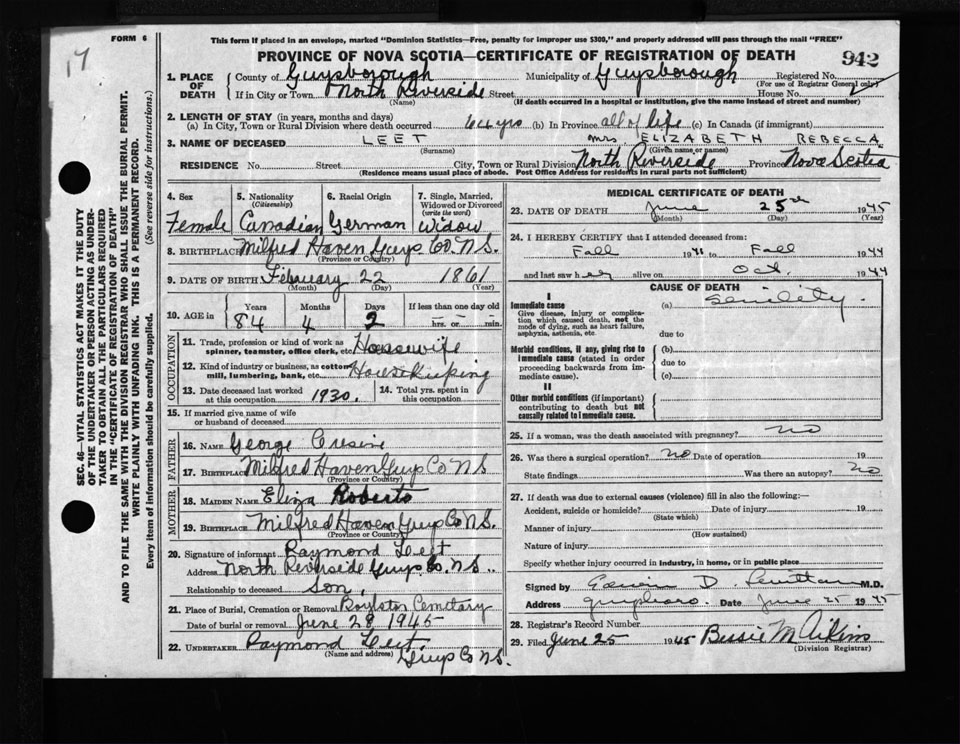 17
FORM 6
This form if placed in an envelope, marked "Dominion Statistics—Free, penalty for improper use $300," and properly addressed will pass through the mail "FREE"
PROVINCE OF NOVA SCOTIA—CERTIFICATE OF REGISTRATION OF DEATH
942
1. PLACE OF DEATH
County of Guysborough Municipality of Guysborough Registered No.
(For use of Registrar General only)
If in City or Town North Riverside Street House No.
(Name) (If death occurred in a hospital or institution, give the name instead of street and number)
2. LENGTH OF STAY (in years, months and days)
(a) In City, Town or Rural Division where death occurred 64 yrs (b) In Province all of life (c) In Canada (if immigrant)
3. NAME OF DECEASED LEET Mrs ELIZABETH REBECCA
(Surname) (Given name or names)
RESIDENCE No. Street City, Town or Rural Division North Riverside Province Nova Scotia
(Residence means usual place of abode. Post Office Address for residents in rural parts not sufficient)
4. Sex 5. Nationality (Citizenship) 6. Racial Origin 7. Single, Married, Widowed or Divorced (write the word)
Female Canadian German Widow
8. BIRTHPLACE Milfred Haven Guys. Co. N.S.
(Province or Country)
9. DATE OF BIRTH February 22 1861
(Month) (Day) (Year)
10. AGE in Years Months Days If less than one day old
84 4 2 hrs. or min.
OCCUPATION
11. Trade, profession or kind of work as spinner, teamster, office clerk, etc. Housewife
12. Kind of industry or business, as cotton mill, lumbering, bank, etc. Housekeeping
13. Date deceased last worked at this occupation 1930. 14. Total yrs. spent in this occupation
15. If married give name of wife or husband of deceased
FATHER
16. NAME George
17. BIRTHPLACE Milfred Haven Guys Co N.S
(Province or Country)
MOTHER
18. MAIDEN NAME Eliza Roberts
19. BIRTHPLACE Milfred Haven Guys Co N.S.
(Province or Country)
20. Signature of informant Raymond Leet
Address North Riverside Guys. Co. N.S..
Relationship to deceased Son,
21. Place of Burial, Cremation or Removal Boylston Cemetary
Date of burial or removal June 28, 1945.
22. UNDERTAKER Raymond Leet.
(Name and address) Guys Co N.S.
MEDICAL CERTIFICATE OF DEATH
23. DATE OF DEATH June 25th 1945
(Month) (Day) (Year)
24. I HEREBY CERTIFY that I attended deceased from:
Fall 1941 to Fall 1944
and last saw her alive on Oct. 1944
CAUSE OF DEATH
I
Immediate cause (a) Senility.
Give disease, injury or complication which caused death, not the mode of dying, such as heart failure, asphyxia, asthenia, etc.
due to
Morbid conditions, if any, giving rise to immediate cause (stated in order proceeding backwards from immediate cause).
(b)
due to
(c)
II
Other morbid conditions (if important) contributing to death but not causally related to immediate cause.
25. If a woman, was the death associated with pregnancy? no
26. Was there a surgical operation? no Date of operation 19
State findings Was there an autopsy? no
27. If death was due to external causes (violence) fill in also the following:—
Accident, suicide or homicide? Date 19
(State which)
Manner of injury
(How sustained)
Nature of injury
Specify whether injury occurred in industry, in home, or in public place
Signed by Edwin D. M.D.
Address Date June 25 1945
28. Registrar's Record Number
29. Filed June 25 1945 Bessie M Aikins
(Division Registrar)
SEC. 46—VITAL STATISTICS ACT MAKES IT THE DUTY
OF THE UNDERTAKER OR PERSON ACTING AS UNDER-
TAKER TO OBTAIN ALL THE PARTICULARS REQUIRED
IN THE "CERTIFICATE OF REGISTRATION OF DEATH"
AND TO FILE THE SAME WITH THE DIVISION REGISTRAR WHO SHALL ISSUE THE BURIAL PERMIT.
WRITE PLAINLY WITH UNFADING INK. THIS IS A PERMANENT RECORD.
Every item of information should be carefully supplied. (See reverse side for instructions.)